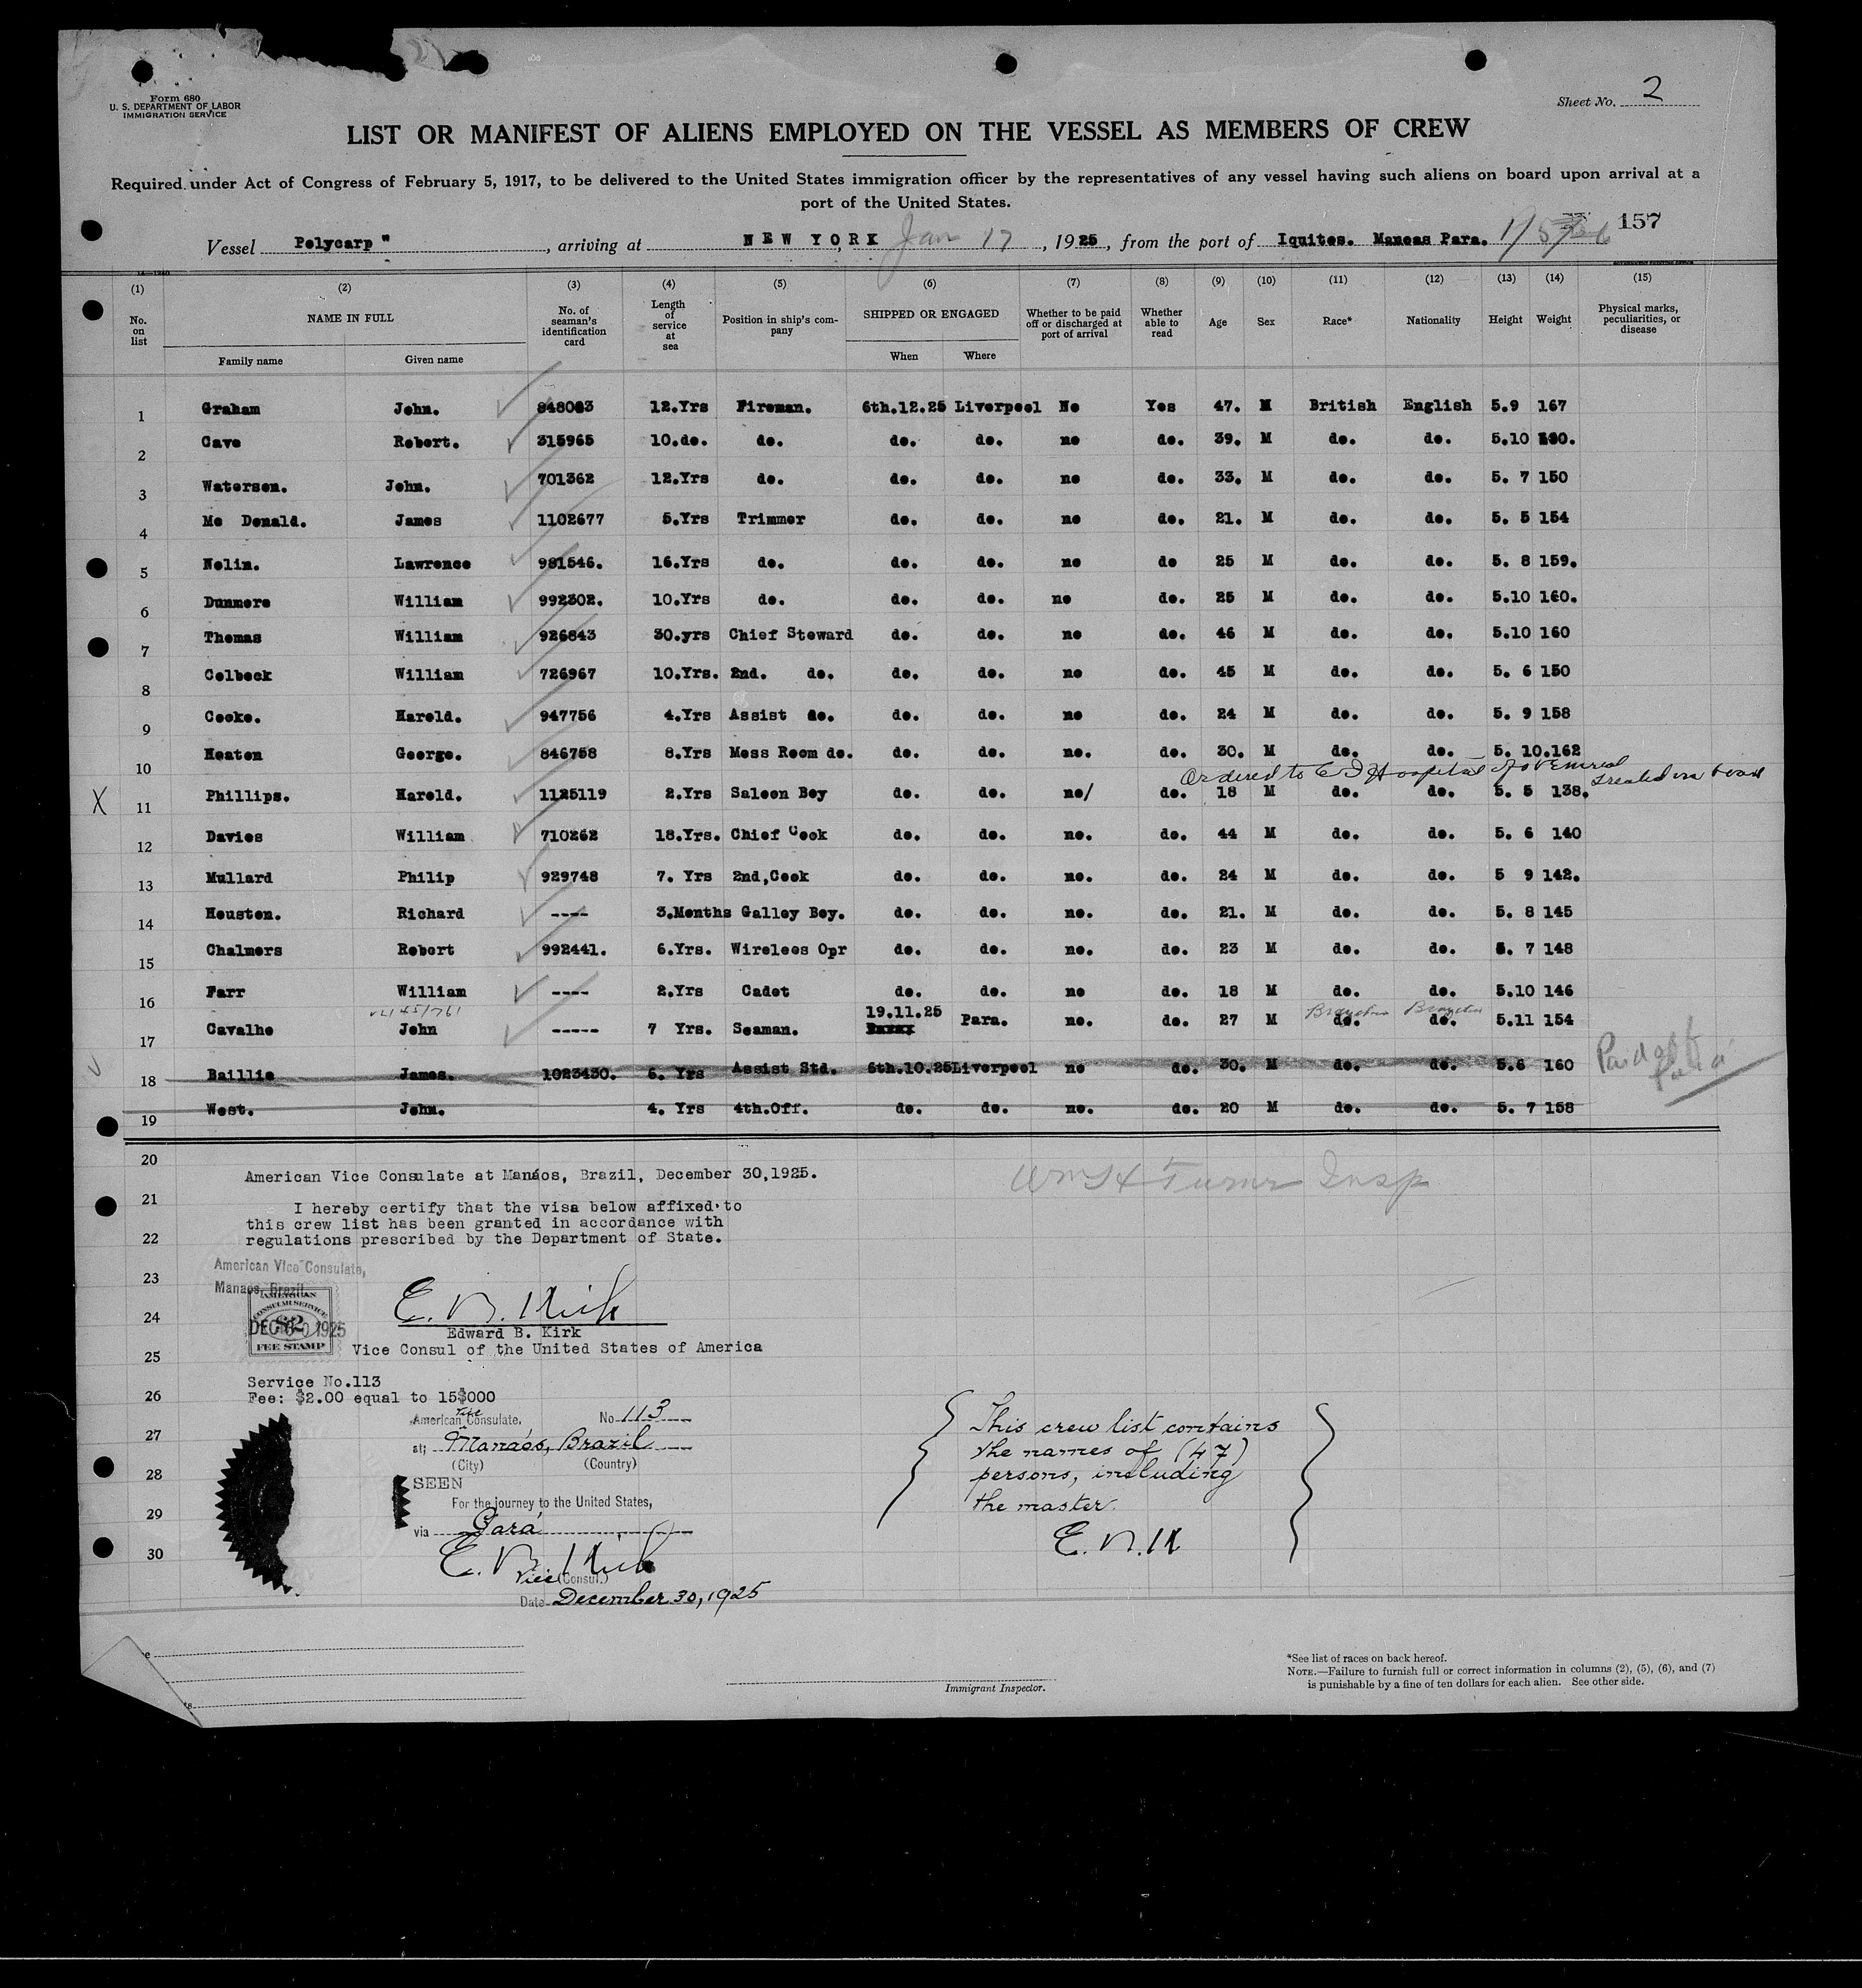 Form 680
U. S. DEPARTMENT OF LABOR
IMMIGRATION SERVICE
Sheet No. 2
LIST OR MANIFEST OF ALIENS EMPLOYED ON THE VESSEL AS MEMBERS OF CREW
Required under Act of Congress of February 5, 1917, to be delivered to the United States immigration officer by the representatives of any vessel having such aliens on board upon arrival at a
port of the United States.
157
Vessel Polycarp", arriving at NEW YORK Jan 17, 1925, from the port of Iquitos. Manoas Para.
(1) (2) (3) (4) (5) (6) (7) (8) (9) (10) (11) (12) (13) (14) (15)
No. on list NAME IN FULL No. of seaman's identification card Length of service at sea Position in ship's company SHIPPED OR ENGAGED Whether to be paid off or discharged at port of arrival Whether able to read Age Sex Race* Nationality Height Weight Physical marks, peculiarities, or disease
Family name Given name When Where
1 Graham John. 848083 12.Yrs Fireman. 6th.12.25 Liverpool No Yes 47. M British English 5.9 167
2 Cave Robert. 315965 10.do. do. do. do. no do. 39. M do. do. 5.10
3 Waterson. John. 701362 12.Yrs do. do. do. no do. 33. M do. do. 5. 7 150
4 Mc Donald. James 1102677 5.Yrs Trimmer do. do. no do. 21. M do. do. 5. 5 154
5 Nolin. Lawrence 981546. 16.Yrs do. do. do. no do 25 M do. do. 5. 8 159.
6 Dunmore William 992302. 10.Yrs do. do. do. no do. 25 M do. do. 5.10 160.
7 Thomas William 926843 30.yrs Chief Steward do. do. no do. 46 M do. do. 5.10 160
8 Colbeck William 726967 10.Yrs. 2nd. do. do. do. no do. 45 M do. do. 5. 6 150
9 Cooke. Harold. 947756 4.Yrs Assist do. do. do. no do. 24 M do. do. 5. 9 158
10 Heaton George. 846758 8.Yrs Mess Room do. do. do. no. do. 30. M do. do. 5. 10.162
Ordered to E I Hospital for venereal treated on board
X 11 Phillips. Harold. 1125119 2.Yrs Saloon Boy do. do. no/ do. 18 M do. do. 5. 5 138.
12 Davies William 710262 18.Yrs. Chief Cook do. do. no. do. 44 M do. do. 5. 6 140
13 Mullard Philip 929748 7. Yrs 2nd,Cook do. do. no. do. 24 M do. do. 5 9 142.
14 Houston. Richard ---- 3.Months Galley Boy. do. do. no. do. 21. M do. do. 5. 8 145
15 Chalmers Robert 992441. 6.Yrs. Wireless Opr do. do. no. do. 23 M do. do. 5. 7 148
16 Farr William ---- 2.Yrs Cadet do. do. no do. 18 M do. do. 5.10 146
17 Cavalho John ----- 7 Yrs. Seaman. 19.11.25 Para. no. do. 27 M do. do. 5.11 154
18 Baillie James. 1023430. 6. Yrs Assist Std. 6th.10.25 Liverpool no do. 30. M do. do. 5.6 160 Paid off Para
19 West. John. 4. Yrs 4th.Off. do. do. no. do. 20 M do. do. 5. 7 158
20
American Vice Consulate at Manáos, Brazil, December 30,1925.
Wm H Turner Insp
21
I hereby certify that the visa below affixed to
this crew list has been granted in accordance with
22
regulations prescribed by the Department of State.
American Vice Consulate,
23
Manaos, Brazil
AMERICAN
CONSULAR SERVICE
$2
FEE STAMP
DEC 30 1925
24
E. B. Kirk
Edward B. Kirk
25
Vice Consul of the United States of America
Service No.113
26
Fee: $2.00 equal to 15$000
American Vice Consulate. No 113
27
at; Manaós, Brazil
(City) (Country)
28
SEEN
For the journey to the United States,
29
via Pará
30
E. B. Kirk
Vice (Consul.)
Date December 30, 1925
This crew list contains
the names of (47)
persons, including
the master.
E. B. K
Immigrant Inspector.
*See list of races on back hereof.
NOTE.—Failure to furnish full or correct information in columns (2), (5), (6), and (7)
is punishable by a fine of ten dollars for each alien. See other side.